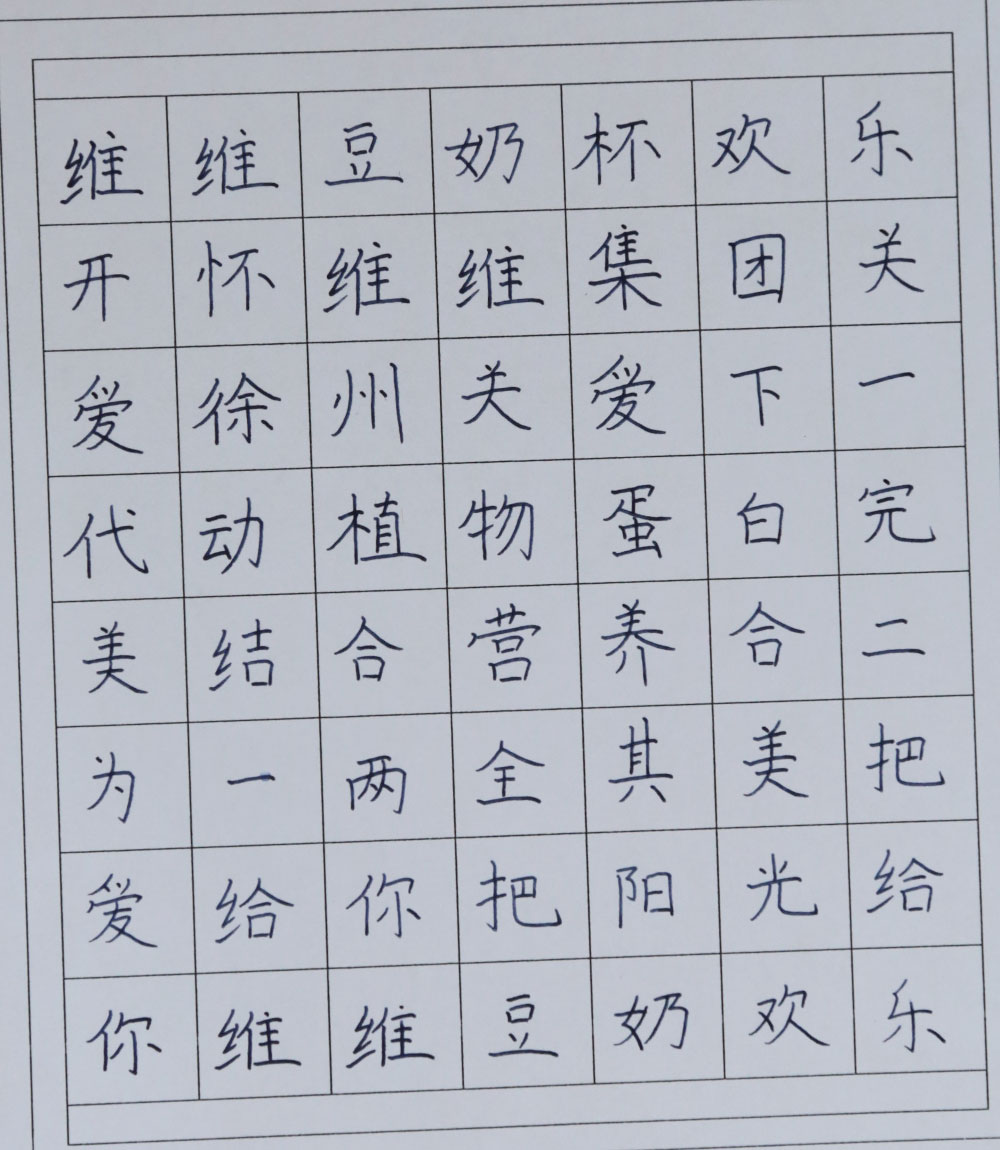 维维豆奶杯欢乐
开怀维维集团关
爱徐州关爱下一
代动植物蛋白完
美结合营养合二
为一两全其美把
爱给你把阳光给
你维维豆奶欢乐